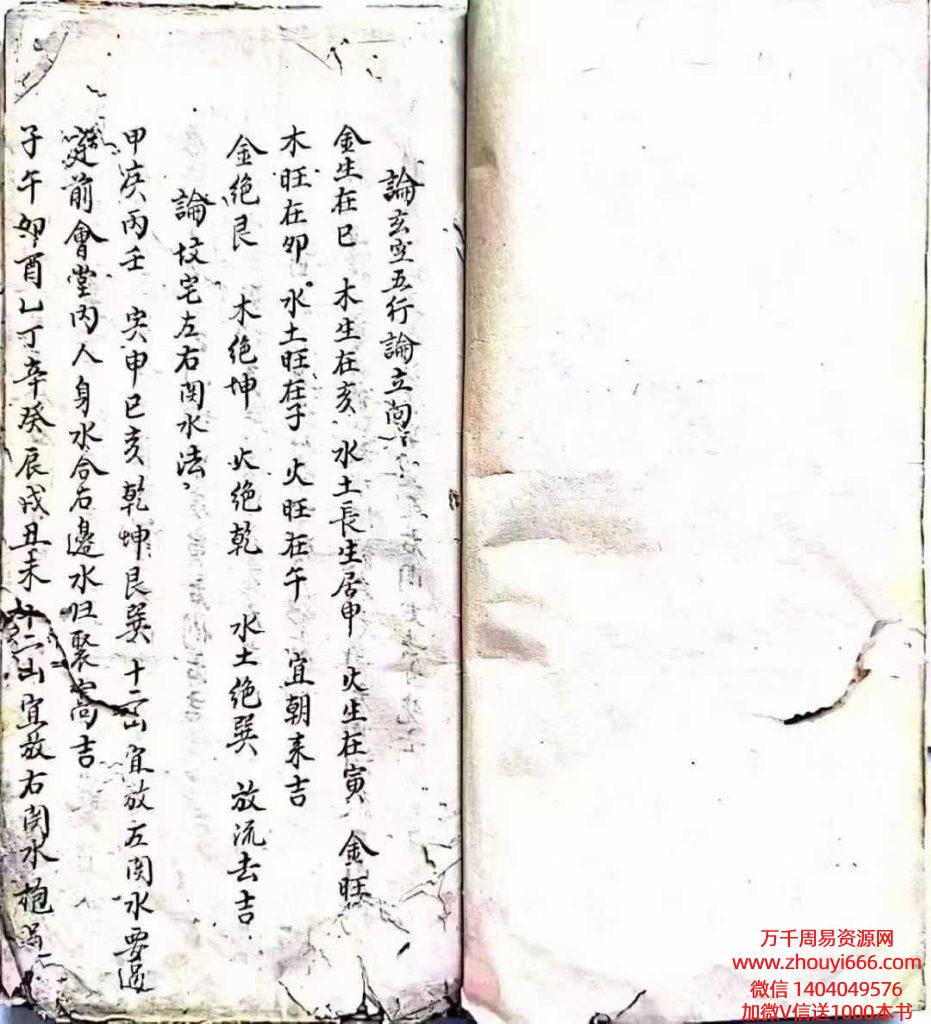 論玄空五行論立向
金生在巳 木生在亥 水土長生居申 火生在寅 金旺
木旺在卯 水土旺在子 火旺在午 宜朝来吉
金绝艮 木绝坤 火绝乾 水土绝巽 放流去吉
論坟宅左右関水法
甲庚丙壬 寅申巳亥乾坤艮巽十二山宜放左関水要過
前會堂内人身水合右邊水归聚
吉
子午卯酉乙丁辛癸辰戌丑未十二山宜放右関水抱
万千周易资源网
www.zhouyi666.com
微信 1404049576
加微V信送1000本书